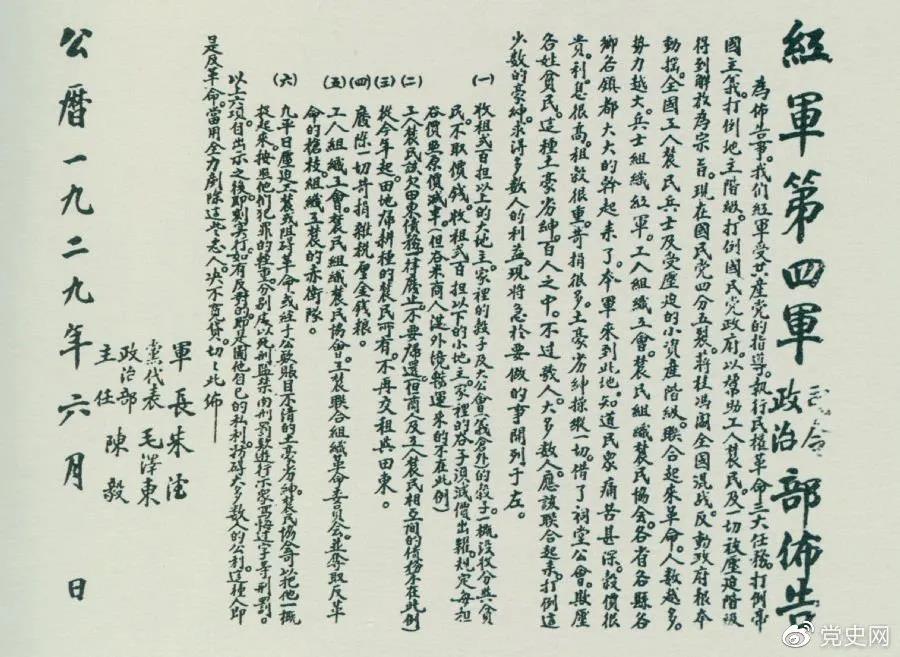 紅軍第四軍司令政治部佈告
為佈告事。我們紅軍受共產党的指導。執行民权革命三大任務。打倒帝
國主義。打倒地主階級。打倒國民党政府。以幫助工人農民及一切被壓迫階級
得到解放為宗旨。現在國民党四分五裂。蔣桂馮閻全國混战。反動政府根本
動搖。全國工人農民兵士及受壓迫的小資產階級。联合起來革命。人数越多。
势力越大。兵士組織紅軍。工人組織工會。農民組織農民協會。各省各縣各
鄉各鎮都大大的幹起來了。本軍來到此地。知道民眾痛苦甚深。穀價很
貴。利息很高。租穀很重。苛捐很多。土豪劣紳操縱一切。借了祠堂公會。欺壓
各姓貧民。這種土豪劣紳。百人之中。不过数人。大多数人。應該联合起來。打倒這
少数的豪紳。求得多数人的利益。現將急於要做的事開列于左。
(一) 收租弍百担以上的大地主。家裡的穀子及大公會(義倉外)的穀子一概沒收分與貧
民。不取價钱。收租弍百担以下的小地主。家裡的谷子須減價出糶。規定每担
谷價照原價減半。(但谷米商人從外境輸運來的不在此例)
(二) 工人農民該欠田東債務。一律廢止。不要歸還。(但商人及工人農民相互間的債務不在此例)
(三) 從今年起。田地歸耕種的農民所有。不再交租與田東。
(四) 廢除一切苛捐雜稅厘金錢粮。
(五) 工人組織工會。農民組織農民協會。工農联合組織革命委員会。並奪取反革
命的槍枝。組織工農的赤衛隊。
(六) 凡平日壓迫工農。或阻碍革命。或經手公款賬目不清的土豪劣紳。農民協會可以把他一概
捉起來。按照他们犯罪的輕重。分別處以死刑監禁肉刑罰款遊行示眾写悔过字等刑罰。
以上六項。自出示之後。即刻实行。如有反對的。即是圖他自己的私利。妨碍大多数人的公利。這種人即
是反革命。當用全力剷除這些惡人。决不寬貸。切切此佈
軍長 朱德
黨代表 毛澤東
政治部主任 陳毅
公曆一九二九年六月 日
党史网